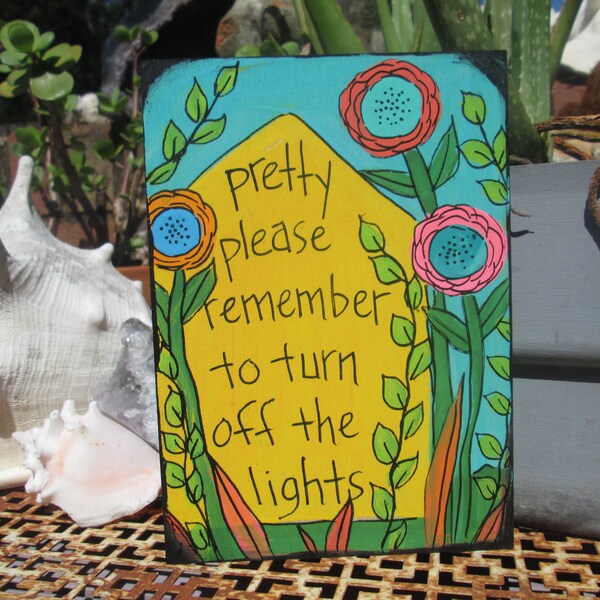 pretty
please
remember
to turn
off the
lights